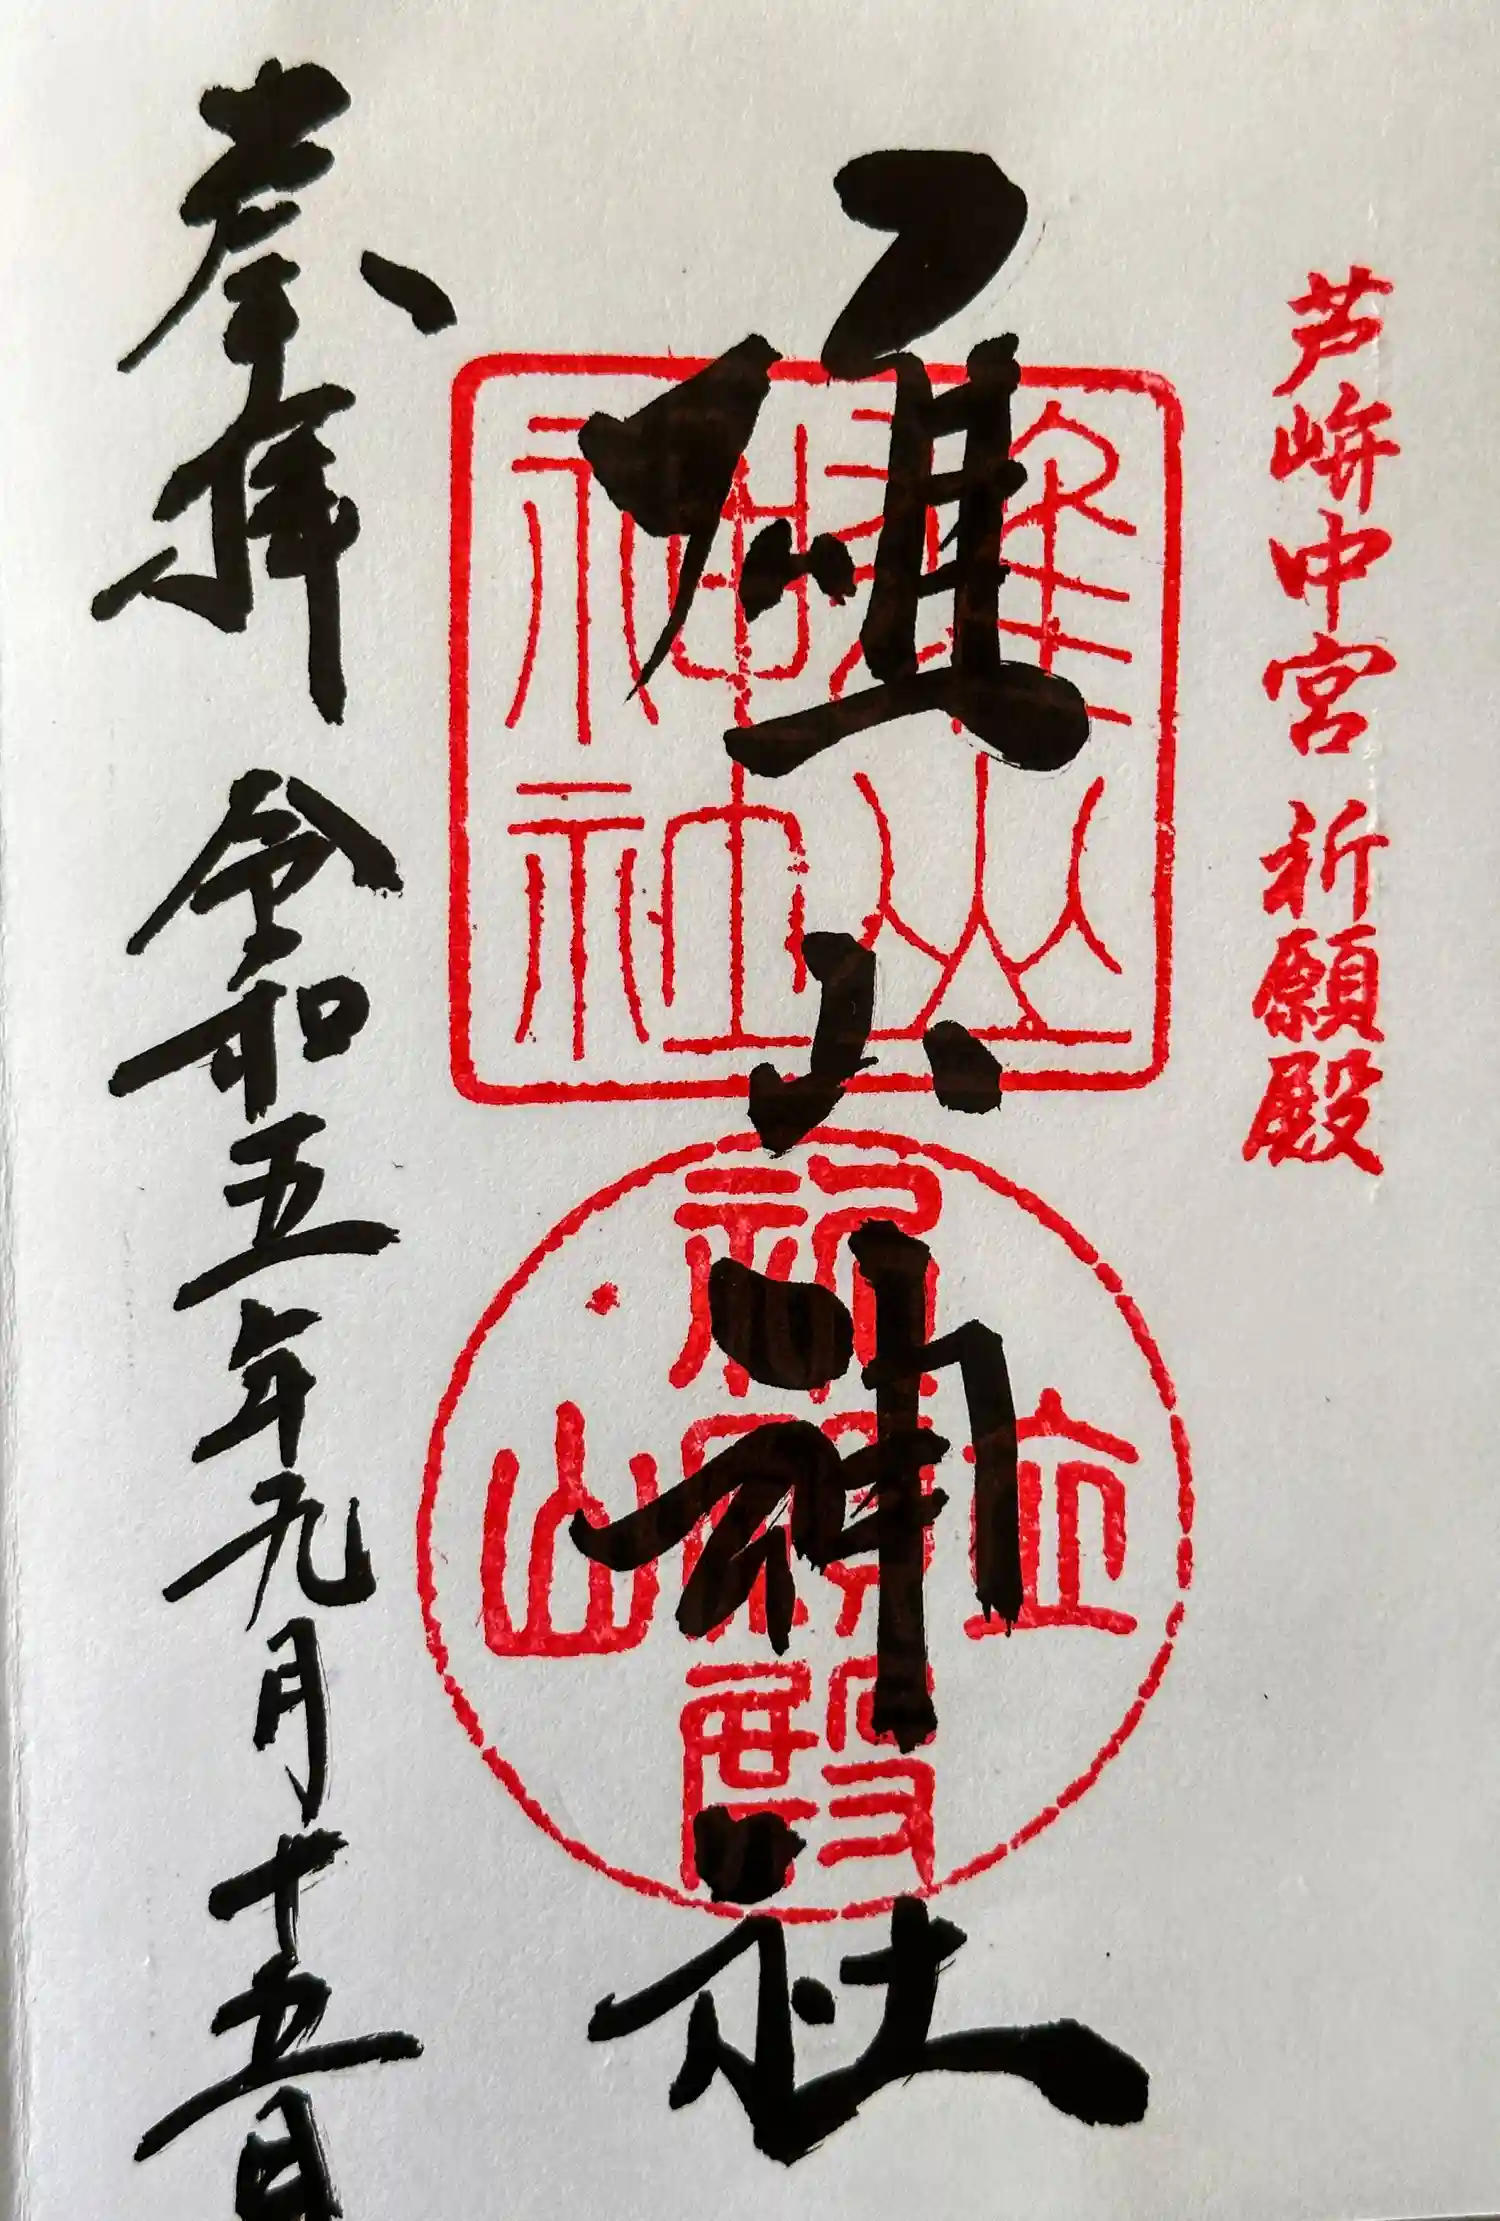 芦峅中宮 祈願殿
雄山神社
奉拝 令和五年九月十五日
雄山
神社
立山
祈願殿